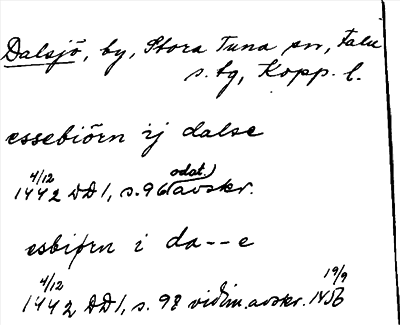 Dalsjö, by, Stora Tuna sn, Falu
s. tg, Kopp. l.
essebiörn ij dalse
4/12 1442 DD 1, s. 96 (odat.) avskr.
esbiørn i da--e
4/12 1442 DD 1, s. 98 vidim. avskr. 19/9 1456